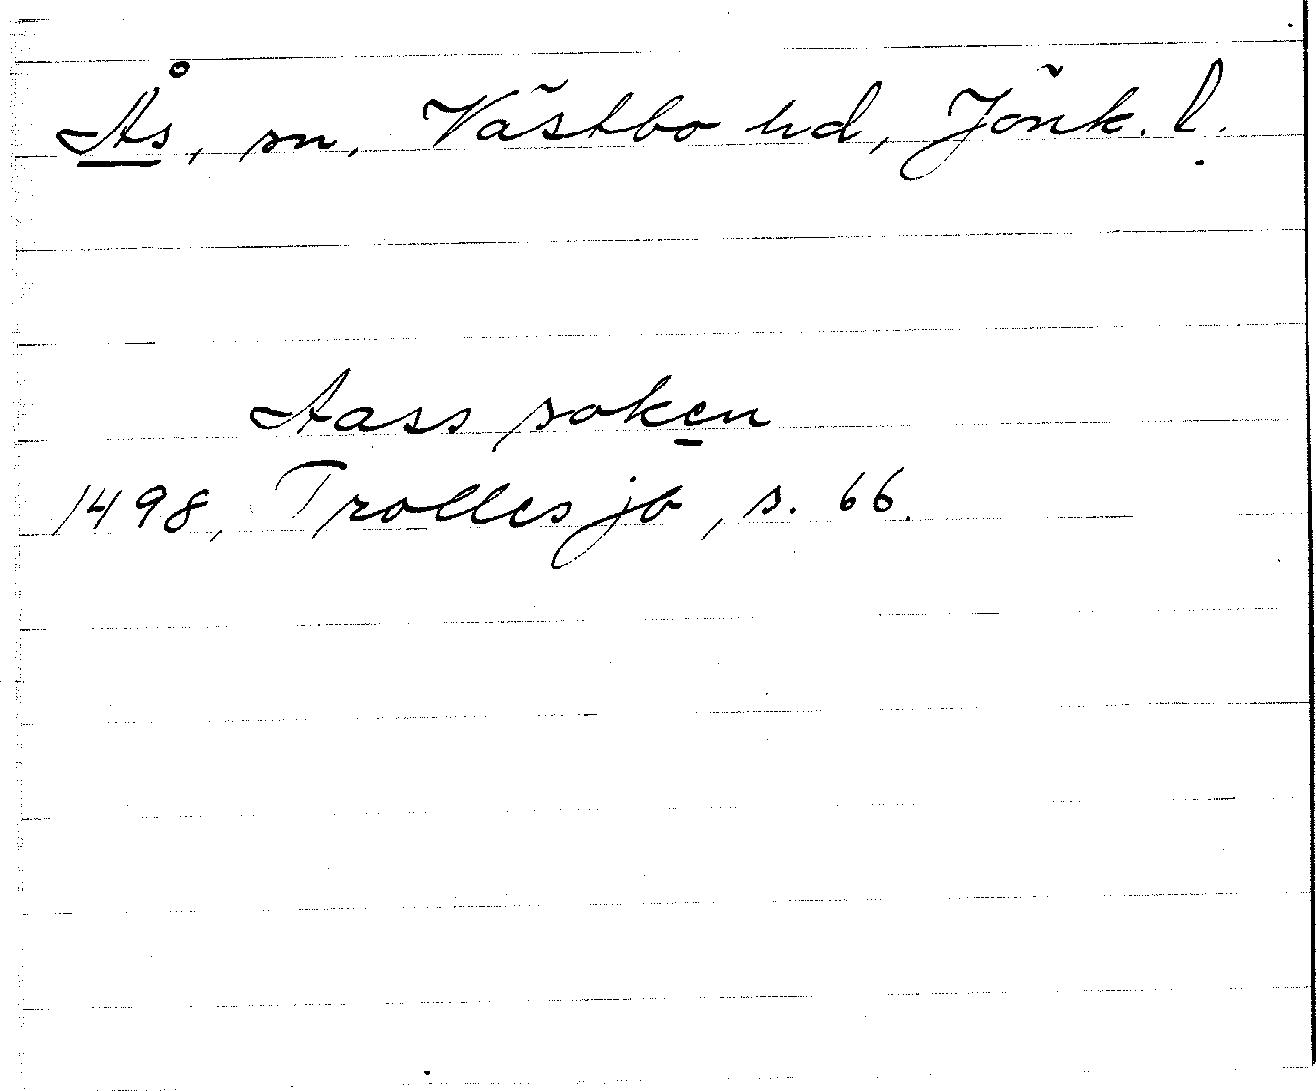 Ås, sn, Västbo hd, Jönk. l.
Aass soken
1498, Trolles jb, s. 66.